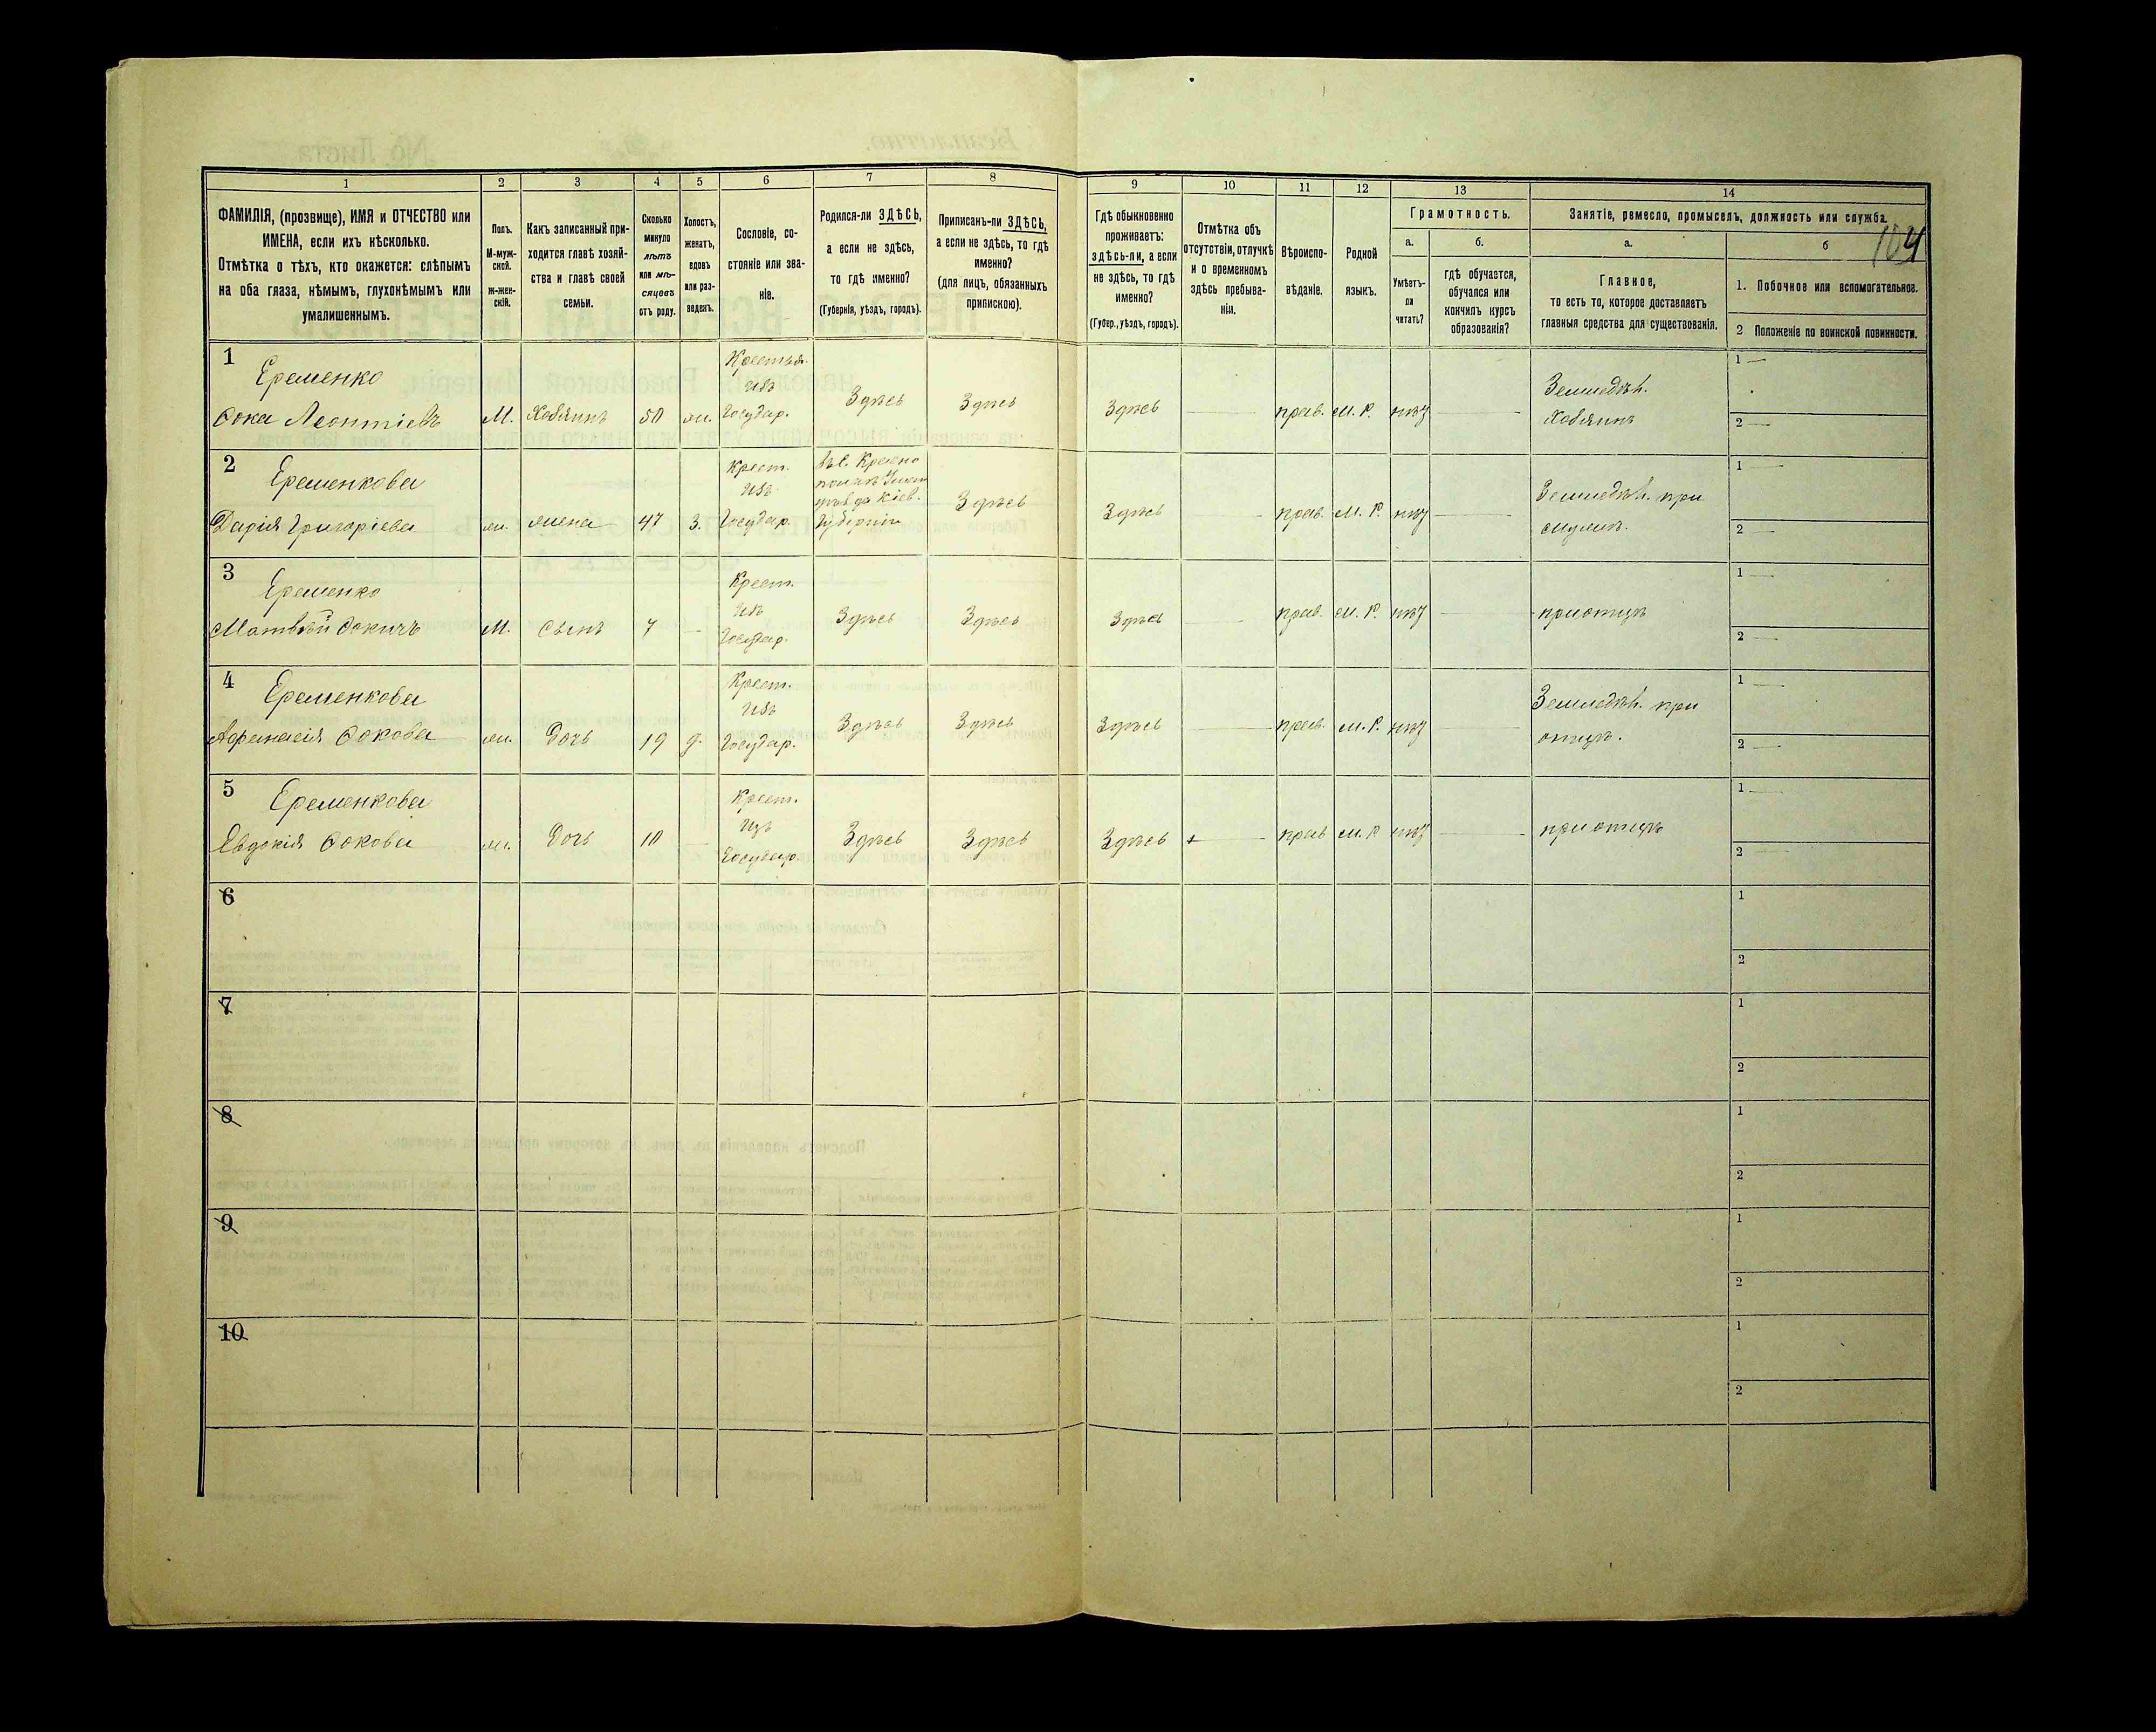 104
1 2 3 4 5 6 7 8 9 10 11 12 13 14
ФАМИЛІЯ, (прозвище), ИМЯ и ОТЧЕСТВО или
ИМЕНА, если ихъ нѣсколько.
Отмѣтка о тѣхъ, кто окажется: слѣпымъ
на оба глаза, нѣмымъ, глухонѣмымъ или
умалишеннымъ.
Полъ.
М-муж-
ской.
ж-жен-
скій.
Какъ записанный при-
ходится главѣ хозяй-
ства и главѣ своей
семьи.
Сколько
минуло
лѣтъ
или мѣ-
сяцевъ
отъ роду.
Холостъ,
женатъ,
вдовъ
или раз-
веденъ.
Сословіе, со-
стояніе или зва-
ніе.
Родился-ли ЗДѢСЬ,
а если не здѣсь,
то гдѣ именно?
(Губернія, уѣздъ, городъ).
Приписанъ-ли ЗДѢСЬ,
а если не здѣсь, то гдѣ
именно?
(для лицъ, обязанныхъ
припискою).
Гдѣ обыкновенно
проживаетъ:
здѣсь-ли, а если
не здѣсь, то гдѣ
именно?
(Губер., уѣздъ, городъ).
Отмѣтка объ
отсутствіи, отлучкѣ
и о временномъ
здѣсь пребыва-
ніи.
Вѣроиспо-
вѣданіе.
Родной
языкъ.
Грамотность.
а.
Умѣетъ-
ли
читать?
б.
гдѣ обучается,
обучался или
кончилъ курсъ
образованія?
Занятіе, ремесло, промыселъ, должность или служба.
а.
Главное,
то есть то, которое доставляетъ
главныя средства для существованія.
б
1. Побочное или вспомогательное.
2 Положеніе по воинской повинности.
1
Еременко
Фока Леонтіевъ
М.
Хозяинъ
50
ж.
Крестья.
изъ
Государ.
Здѣсь
Здѣсь
Здѣсь
прав.
М. Р.
нѣт
Земледѣл.
Хозяинъ
1 —
2 —
2
Еременкова
Дарія Григоріева
ж.
жена
47
З.
Крест.
изъ
Государ.
уѣзда Кіев.
Губерніи
Здѣсь
Здѣсь
прав.
М. Р.
нѣт
Земледѣл. при
мужѣ.
1 —
2 —
3
Еременко
Матвѣй Фокичъ
М.
Сынъ
7
Крест.
Изъ
Государ.
Здѣсь
Здѣсь
Здѣсь
прав.
М. Р.
нѣт
при отцѣ
1 —
2 —
4
Еременкова
Афанасія Фокова
ж.
Дочь
19
д.
Крест.
Изъ
Государ.
Здѣсь
Здѣсь
Здѣсь
прав.
М. Р.
нѣт
Земледѣл. при
отцѣ.
1 —
2 —
5
Еременкова
Евдокія Фокова
ж.
Дочь
10
Крест.
Изъ
Государ.
Здѣсь
Здѣсь
Здѣсь
+
прав
М. Р
нѣт
при отцѣ
1 —
2 —
6
1
2
7
1
2
8
1
2
9
1
2
10
1
2